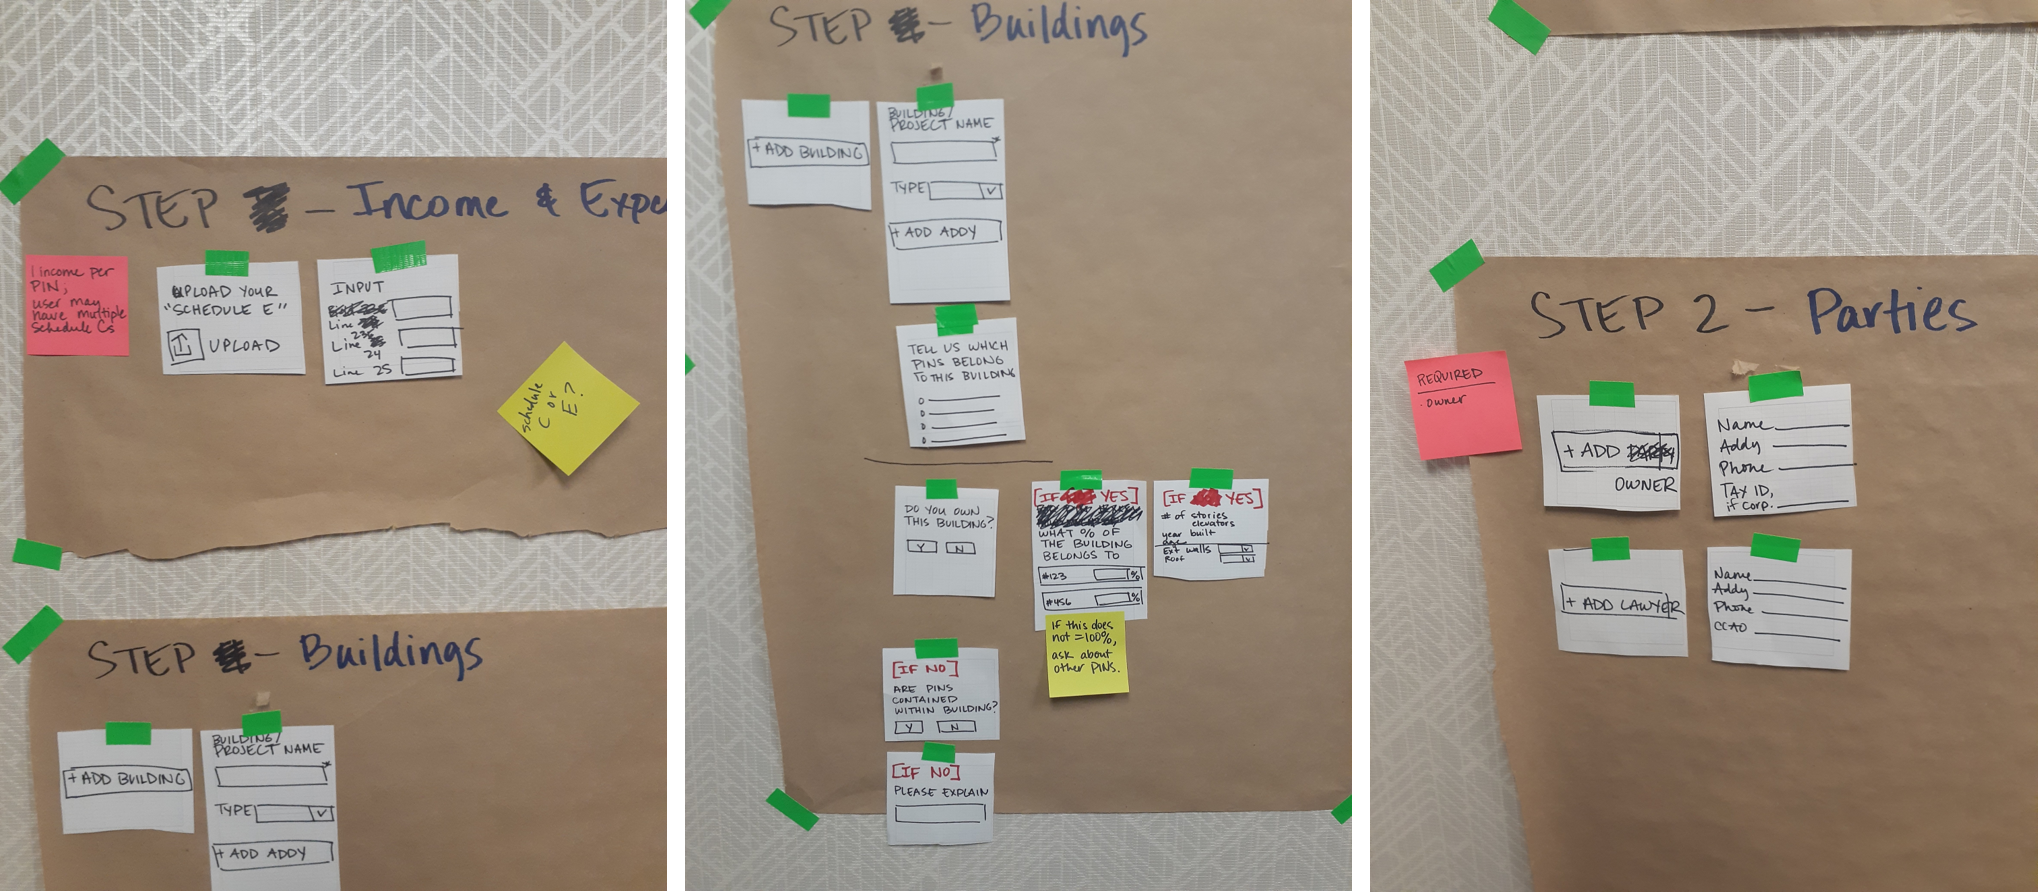 STEP - Income & Expe
1 income per
PIN;
user may
have multiple
Schedule Cs
UPLOAD YOUR
"SCHEDULE E"
UPLOAD
INPUT
Line 23
Line 24
Line 25
Schedule
C or
E?
STEP - Buildings
+ ADD BUILDING
BUILDING/
PROJECT NAME
*
TYPE
+ ADD ADDY
STEP - Buildings
+ ADD BUILDING
BUILDING/
PROJECT NAME
*
TYPE
+ ADD ADDY
TELL US WHICH
PINS BELONG
TO THIS BUILDING
DO YOU OWN
THIS BUILDING?
Y N
[IF YES]
WHAT % OF
THE BUILDING
BELONGS TO
#123 %
#456 %
If this does
not =100%,
ask about
other PINs.
[IF YES]
# of stories
elevators
year built
Ext walls
Roof
[IF NO]
ARE PINS
CONTAINED
WITHIN BUILDING?
Y N
[IF NO]
PLEASE EXPLAIN
STEP 2 - Parties
REQUIRED
. owner
+ ADD
OWNER
Name
Addy
Phone
TAX ID,
if corp.
+ ADD LAWYER
Name
Addy
Phone
CCAO